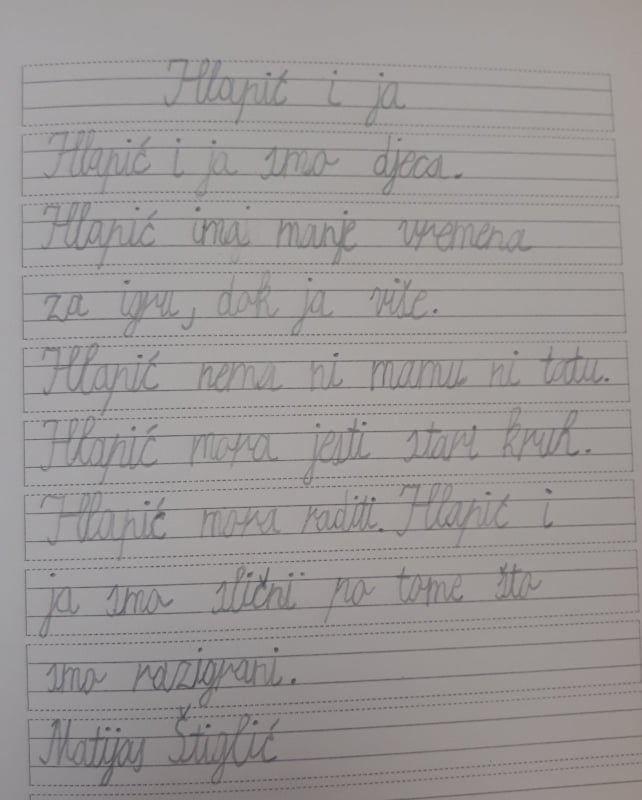 Hlapić i ja
Hlapić i ja smo djeca.
Hlapić imaj manje vremena
za igru, dok ja više.
Hlapić nema ni mamu ni tatu.
Hlapić mora jesti stari kruh.
Hlapić mora raditi. Hlapić i
ja smo slični po tome što
smo razigrani.
Matijas Štiglić